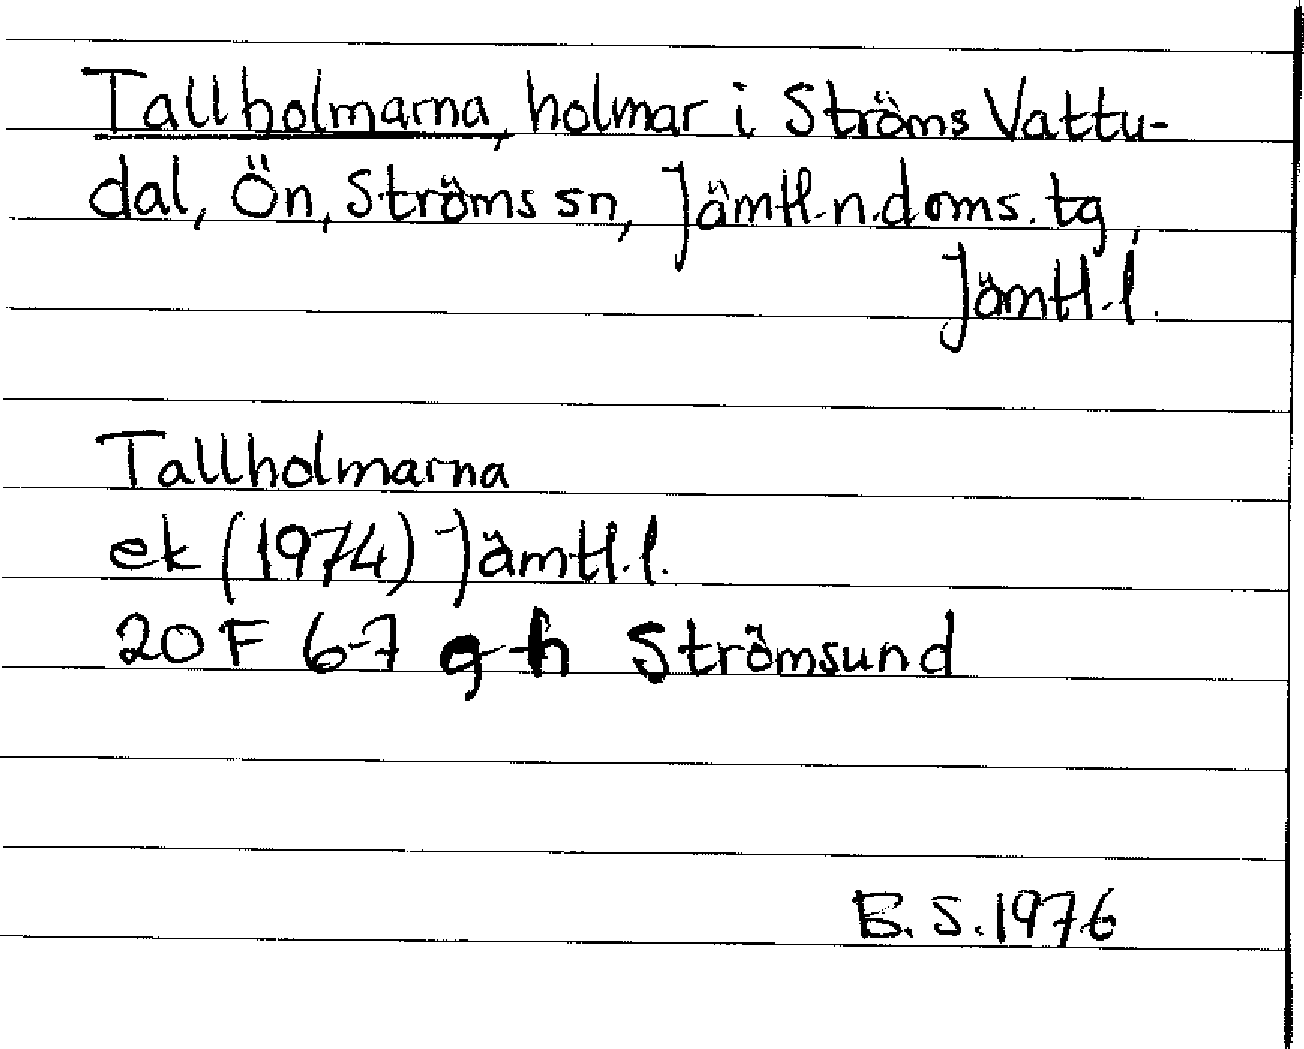 Tallholmarna, holmar i Ströms Vattu-
dal, Ön, Ströms sn, Jämtl. n. doms. tg,
Jämtl. l.
Tallholmarna
ek (1974) Jämtl. l.
20 F 6-7 g-h Strömsund
B. S. 1976